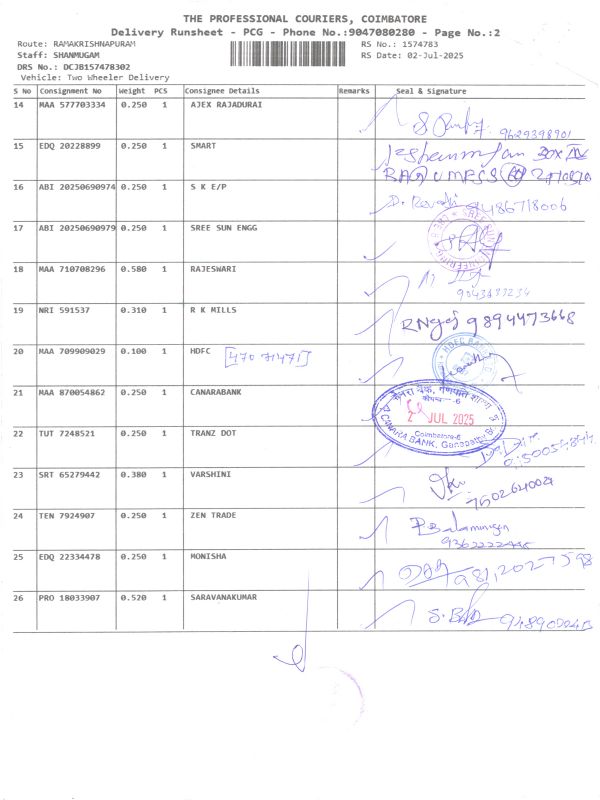 THE PROFESSIONAL COURIERS, COIMBATORE
Delivery Runsheet - PCG - Phone No.:9047080280 - Page No.:2
Route: RAMAKRISHNAPURAM RS No.: 1574783
Staff: SHANMUGAM RS Date: 02-Jul-2025
DRS No.: DCJB157478302
Vehicle: Two Wheeler Delivery
S No Consignment No Weight PCS Consignee Details Remarks Seal & Signature
14 MAA 577703334 0.250 1 AJEX RAJADURAI
9629398901
15 EDQ 20228899 0.250 1 SMART
16 ABI 20250690974 0.250 1 S K E/P
D. Revathi 9486718006
17 ABI 20250690979 0.250 1 SREE SUN ENGG
18 MAA 710708296 0.580 1 RAJESWARI
19 NRI 591537 0.310 1 R K MILLS
9894473668
20 MAA 709909029 0.100 1 HDFC [470 71471]
21 MAA 870054862 0.250 1 CANARABANK
केनरा बैंक, गणपति शाखा
कोयम्ब -6
2 JUL 2025
Coimbatore-6
CANARA BANK, Ganapathy Br.
22 TUT 7248521 0.250 1 TRANZ DOT
23 SRT 65279442 0.380 1 VARSHINI
24 TEN 7924907 0.250 1 ZEN TRADE
P Balamurugan
25 EDQ 22334478 0.250 1 MONISHA
26 PRO 18033907 0.520 1 SARAVANAKUMAR